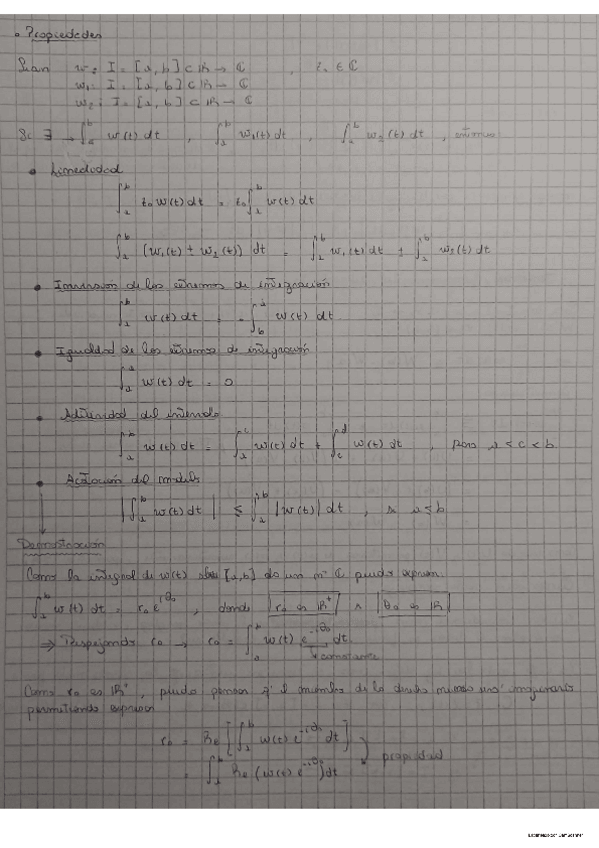 • Propiedades
Sean w: I = [a, b] ⊂ ℝ → ℂ , z₀ ∈ ℂ
w₁: I = [a, b] ⊂ ℝ → ℂ
w₂: I = [a, b] ⊂ ℝ → ℂ
Si ∃ → ∫ₐᵇ w(t) dt , ∫ₐᵇ w₁(t) dt , ∫ₐᵇ w₂(t) dt , entonces
• Linealidad
∫ₐᵇ z₀ w(t) dt = z₀ ∫ₐᵇ w(t) dt
∫ₐᵇ (w₁(t) ± w₂(t)) dt = ∫ₐᵇ w₁(t) dt ± ∫ₐᵇ w₂(t) dt
• Inversión de los extremos de integración
∫ₐᵇ w(t) dt = -∫_b^a w(t) dt
• Igualdad de los extremos de integración
∫ₐᵃ w(t) dt = 0
• Aditividad del intervalo
∫ₐᵇ w(t) dt = ∫ₐᶜ w(t) dt + ∫_c^d w(t) dt , para a < c < b
• Acotación del módulo
|∫ₐᵇ w(t) dt| ≤ ∫ₐᵇ |w(t)| dt , a ≤ b
Demostración
Como la integral de w(t) sobre [a,b] da un nº ℂ puedo expresar
∫ₐᵇ w(t) dt = r₀ e^{iθ₀} , donde r₀ es ℝ⁺ ∧ θ₀ es ℝ
→ Despejando r₀ → r₀ = ∫ₐᵇ w(t) e^{-iθ₀} dt
constante
Como r₀ es ℝ⁺, puedo pensar q' el miembro de la derecha
permitiendo expresar
r₀ = Re [∫ₐᵇ w(t) e^{-iθ₀} dt]
= ∫ₐᵇ Re (w(t) e^{-iθ₀}) dt
propiedad